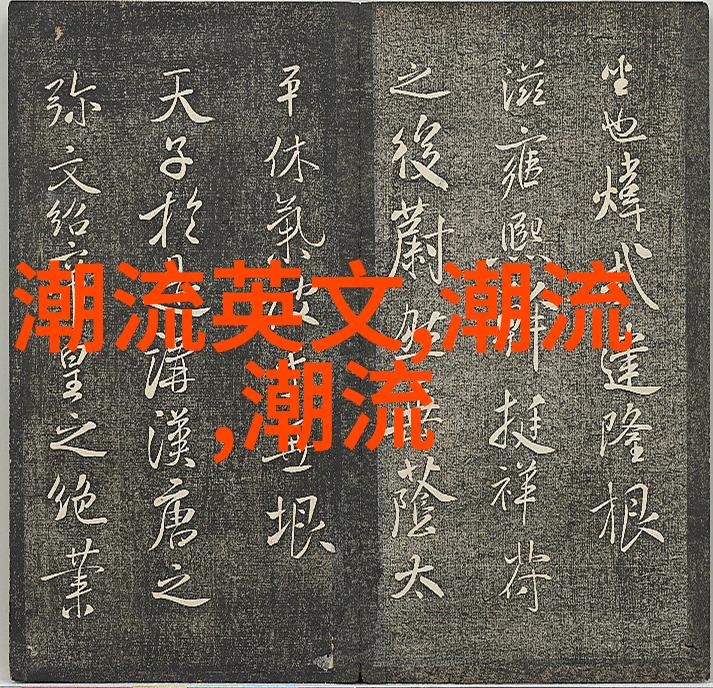 潮流英文,潮流
,潮流
也煒建隆根
滋雍熙挺祥符
之後蔚蔭太
平休氣垠
天子於是講漢唐之
弥文紹皇之絶業